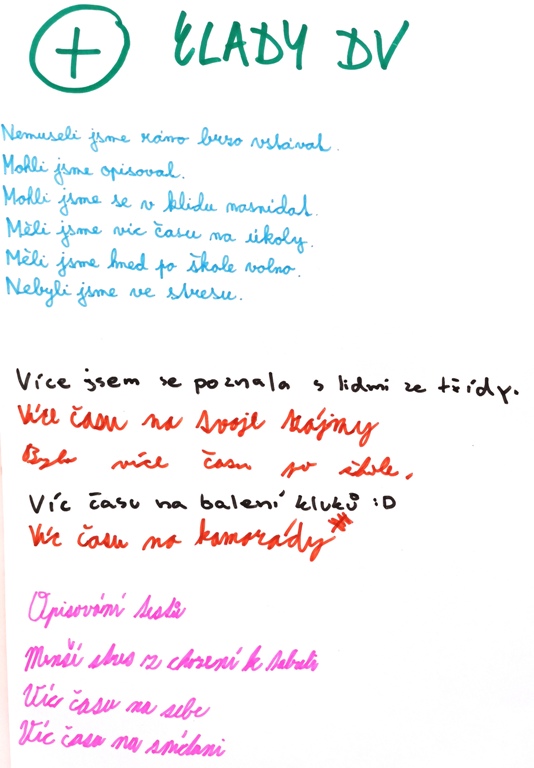 + KLADY DV
Nemuseli jsme ráno brzo vstávat.
Mohli jsme opisovat.
Mohli jsme se v klidu nasnídat.
Měli jsme víc času na úkoly.
Měli jsme hned po škole volno.
Nebyli jsme ve stresu.
Více jsem se poznala s lidmi ze třídy.
Více času na svoje zájmy
Bylo více času po škole.
Víc času na balení kluků :D
Víc času na kamarády
Opisování testů
Menší stres z chození k tabuli
Víc času na sebe
Víc času na snídani